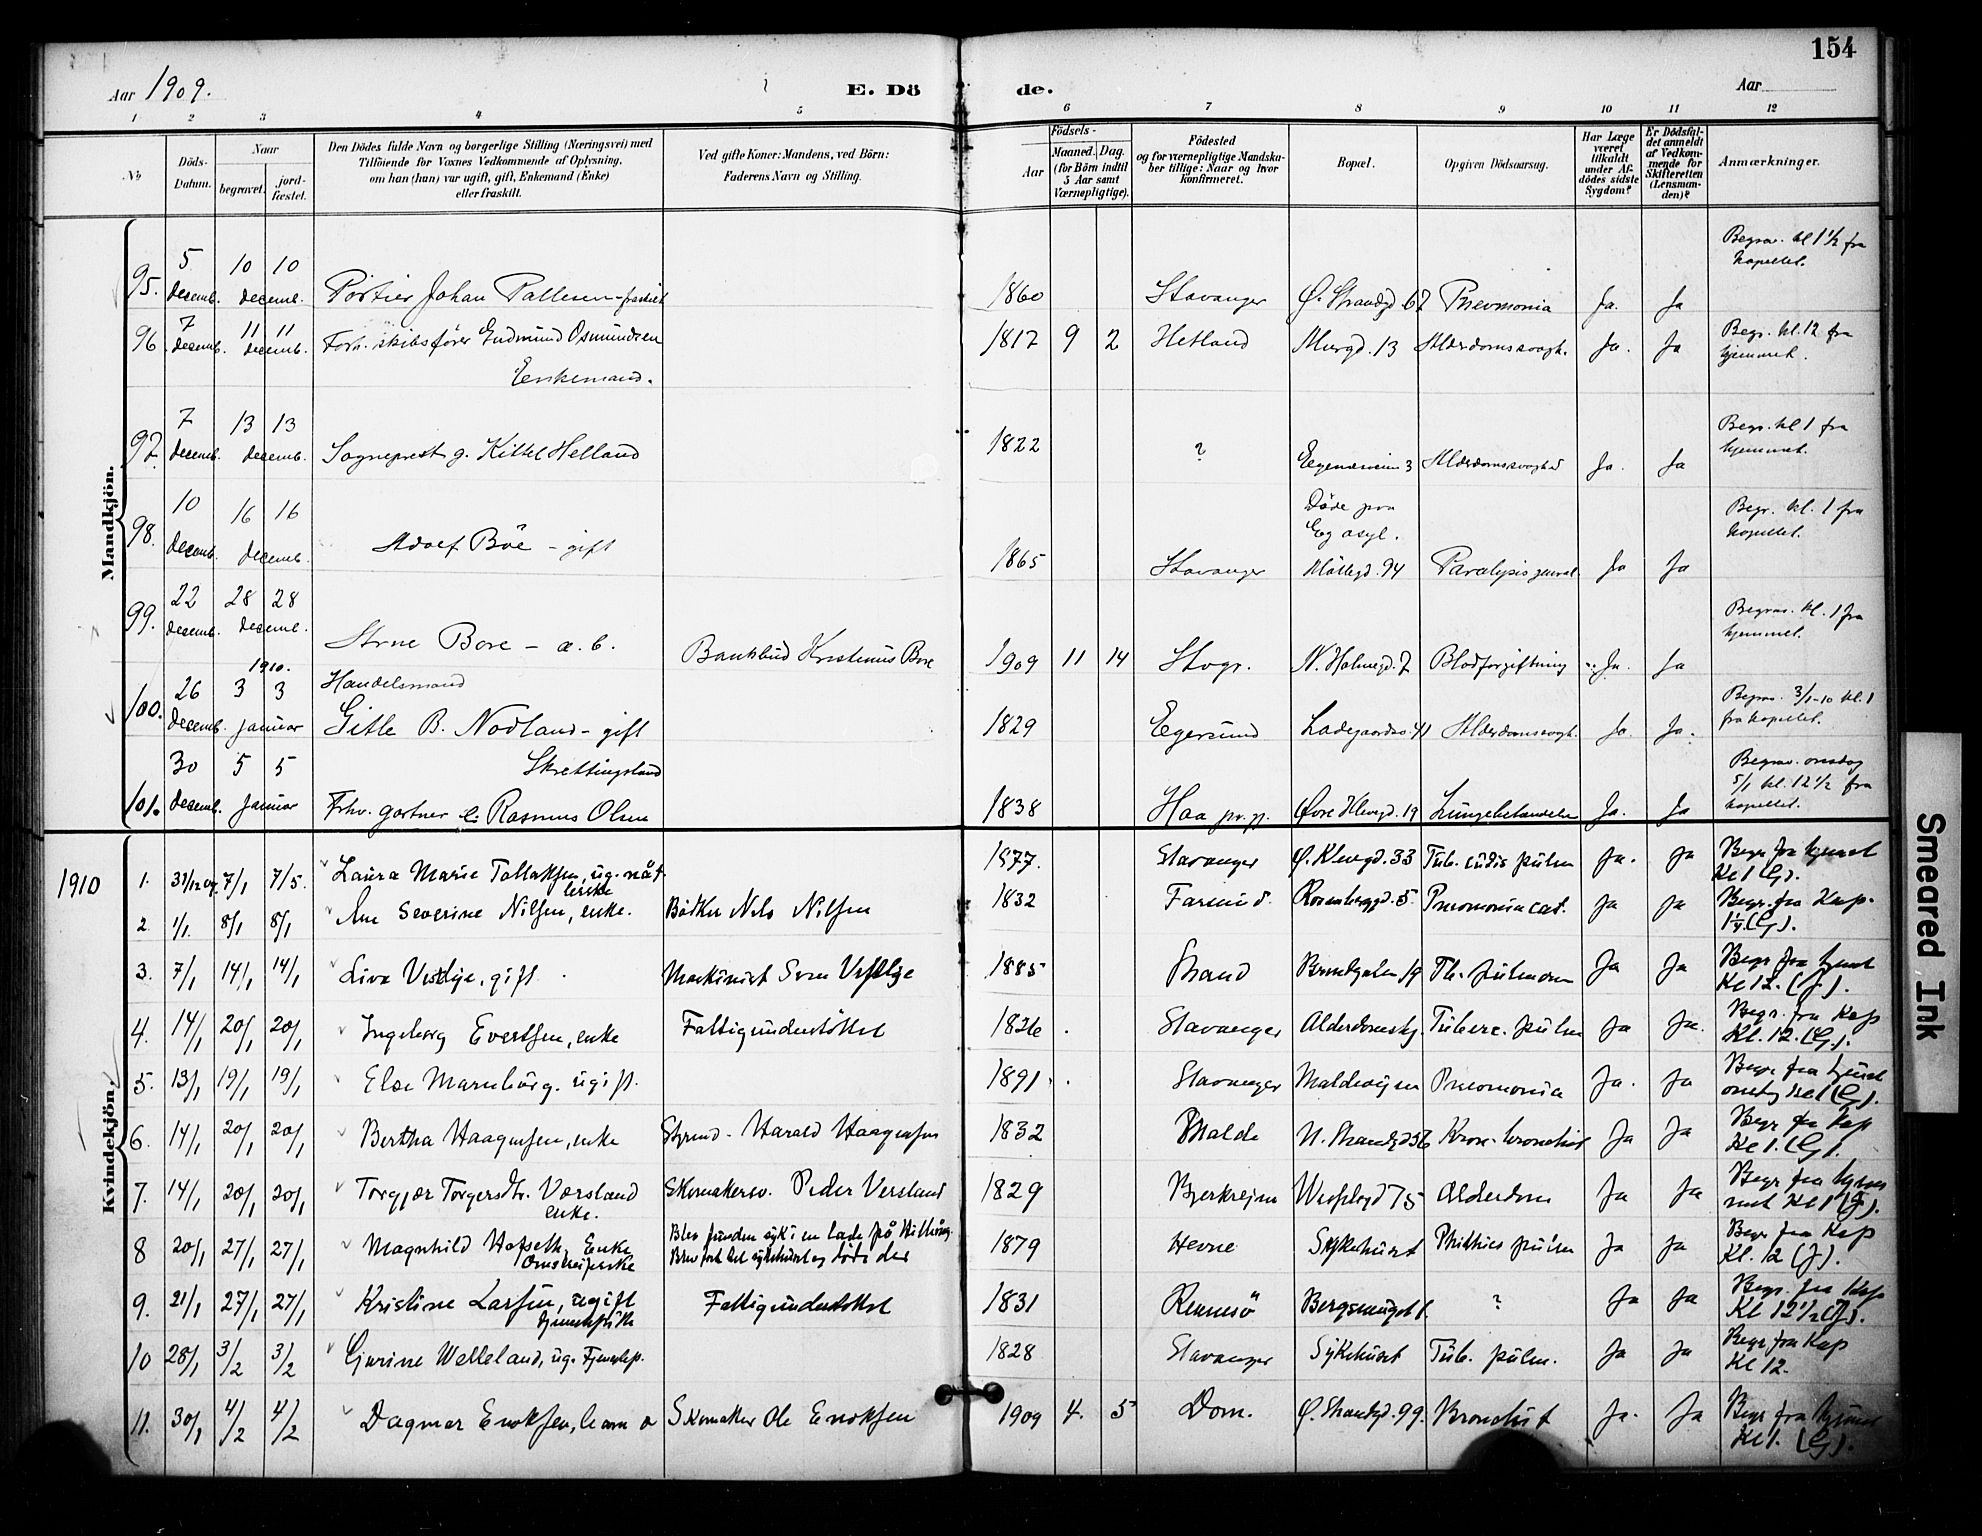 154
Aar 1909.
E. Dö de.
Aar
1 2 3 4 5 6 7 8 9 10 11 12
No
Döds-Datum.
Naar
begravet.
jord-fæstet.
Den Dödes fulde Navn og borgerlige Stilling (Næringsvei) med
Tilföiende for Voxnes Vedkommende af Oplysning,
om han (hun) var ugift, gift, Enkemand (Enke)
eller fraskilt.
Ved gifte Koner: Mandens, ved Börn:
Faderens Navn og Stilling.
Födsels-
Aar
Maaned. Dag.
(for Börn indtil
5 Aar samt
Værnepligtige).
Födested
og for værnepligtige Mandska-
ber tillige: Naar og hvor
konfirmeret.
Bopæl.
Opgiven Dödsaarsag.
Har Læge
været
tilkaldt
under Af-
dödes sidste
Sygdom?
Er Dödsfal-
det anmeldt
af Vedkom-
mende for
Skifteretten
(Lensman-
den)?
Anmærkninger.
Mandkjön.
95. 5 decemb. 10 10 decemb. Portier Johan Pallesen 1860 Stavanger Ø. Strandgd 67 Pneumonia Ja. Ja Begrav. kl 1 1/2 fra kapellet.
96 7 decemb. 11 11 decemb. Forh. skibsfører Gudmund Osmundsen Enkemand. 1817 9 2 Hetland Murgd. 13 Alderdomssvagh. Ja. Ja Begr. kl. 12 fra hjemmet.
97. 7 decemb. 13 13 decemb. Sogneprest g. Kittel Helland 1822 ? 3 Alderdomssvaghed Ja. Ja Begr. kl 1 fra hjemmet.
98. 10 decemb. 16 16 decemb. Adolf Böe – gift 1865 Stavanger Døde paa Eg asyl. 94 Paralysis general. Ja Ja Begr. kl. 1 fra kapellet.
99. 22 decemb. 28 28 decemb. Arne Bore – æ. b. Bankbud Kristinus Bore 1909 11 14 Stvgr. N. Holmegd. 7 Blodforgiftning Ja. Ja Begrav. kl. 1 fra hjemmet.
100. 26 decemb. 1910. 3 3 januar Handelsmand Gitle B. Nodland – gift 1829 Egersund Ladegaardsv. 41 Alderdomssvagh. Ja. Ja. Begrav. 3/1-10 kl. 1 fra kapellet.
101. 30 decemb. 5 5 januar Skrettingsland Fhv. gartner e. Rasmus Olsen 1838 Haa pr.gj. Øvre Klevgd. 19 Lungebetændelse Ja. Ja Begrav. onsdag 5/1 kl. 12 1/2 fra kapellet.
1910
Kvindekjön.
1. 31/12 09. 7/1 7/5. Laura Marie Tallaksen, ug. 1877. Stavanger Ø. Klevgd. 33 Tub. pulm Ja. Ja Begr fra hjemet Kl 1 (G).
2 1/1. 8/1 8/1 Ane Severine Nilsen, enke. Bødker Nels Nilsen 1832 Farsund. Rosenberggd. 5. Pneomonia cat. Ja Ja Begr. fra Kap. (G).
3. 7/1 14/1 14/1 Liva Vestlye, gift. Maskinist Sven Vestlye 1885 Strand 19 Tb. pulmon Ja Ja Begr fra hjemet Kl 12. (J).
4. 14/1 20/1 20/1 Ingeborg Evertsen, enke Fattigunderstöttet 1826 Stavanger Alderdomshj. Tuberc. pulm Ja Ja. Begr. fra Kap Kl. 12. (G).
5. 13/1 19/1 19/1 Else Marnburg. ugift. 1891 Stavanger Pneomonia Ja. Ja Begr fra hjemet onsdg Kl 1 (G).
6. 14/1 20/1 20/1 Bertha Haagensen, enke Styrmd. Harald Haagensen 1832 N. Strandgd 56 Kron. bronchit Ja Ja Begr fra Kap Kl 1. (G).
7. 14/1 20/1 20/1 Torgjær Torgersdtr. Værsland enke. Skomakersv. Peder Versland 1829 Bjerkrejm 75 Alderdom Ja Ja Begr fra hjemmet Kl 1 (J).
8 20/1 27/1 27/1 Magnhild Hofseth, Enke Blev funden syk i en lade på Hillevåg. Blev ført til sykehuset og døde der 1879 Hevne Sykehuset Phthisis pulm Ja Ja Begr fra Kap Kl. 12 (J).
9. 21/1 27/1 27/1 Kristine Larsen, ugift Fattigunderstöttet 1831 Rennesö Bergsmugst 1. ? Ja Ja Begr. fra Kap Kl 12 1/2 (J).
10 28/1 3/2 3/2 Gurine Welleland, ug. 1828 Stavanger Sykehuset Tub. pulm. Ja Ja Begr fra Kap Kl 12.
11. 30/1 4/2 4/2 Dagmar Enoksen, Skomaker Ole Enoksen 1909 4. 5 Dom. Ø. Strandgd. 99. Bronchit Ja. Ja Begr fra hjemet Kl 1. (G).
Smeared Ink